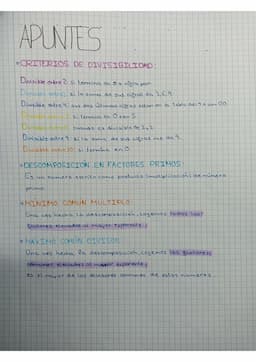 APUNTES
• CRITERIOS DE DIVISIBILIDAD:
Divisible entre 2: si termina en 0 o cifra par.
Divisible entre 3: si la suma de sus cifras es 3, 6, 9.
Divisible entre 4: sus dos últimas cifras están en la tabla del 4 o son 00.
Divisible entre 5: si termina en 0 o en 5.
Divisible entre 6: cuando es divisible de 2, 3.
Divisible entre 9: si la suma de sus cifras es 9.
Divisible entre 10: si termina en 0.
• DESCOMPOSICIÓN EN FACTORES PRIMOS:
Es un número escrito como producto (multiplicación) de número
primo.
• MÍNIMO COMÚN MÚLTIPLO:
Una vez hecha la descomposición, cogemos todos los
factores elevados al mayor exponente.
• MÁXIMO COMÚN DIVISOR:
Una vez hecha la descomposición, cogemos los factores
comunes elevados al exponente.
Es el mayor de los divisores comunes de estos números.